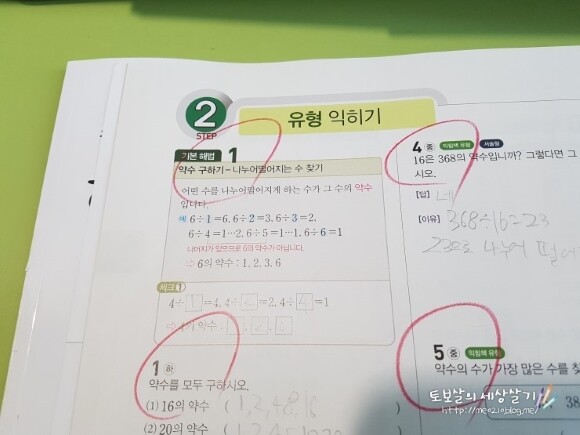 2
STEP
유형 익히기
기본 해법 1
약수 구하기 - 나누어떨어지는 수 찾기
어떤 수를 나누어떨어지게 하는 수가 그 수의 약수
입니다.
예 6÷1=6, 6÷2=3, 6÷3=2,
6÷4=1…2, 6÷5=1…1, 6÷6=1
나머지가 있으므로 6의 약수가 아닙니다.
⇨ 6의 약수 : 1, 2, 3, 6
체크
4÷1=4, 4÷2=2, 4÷4=1
⇨ 4의 약수 : 1, 2,
1 하
약수를 모두 구하시오.
(1) 16의 약수 ( 1, 2, 4, 8, 16
(2) 20의 약수 (
4 중 익힘책 유형 서술형
16은 368의 약수입니까? 그렇다면 그
시오.
[답] 네
[이유] 368÷16=23
23으로 나누어 떨어
5 중 익힘책 유형
약수의 수가 가장 많은 수를 찾
38
토보살의 세상살기
http://meo2.o.blog.me/